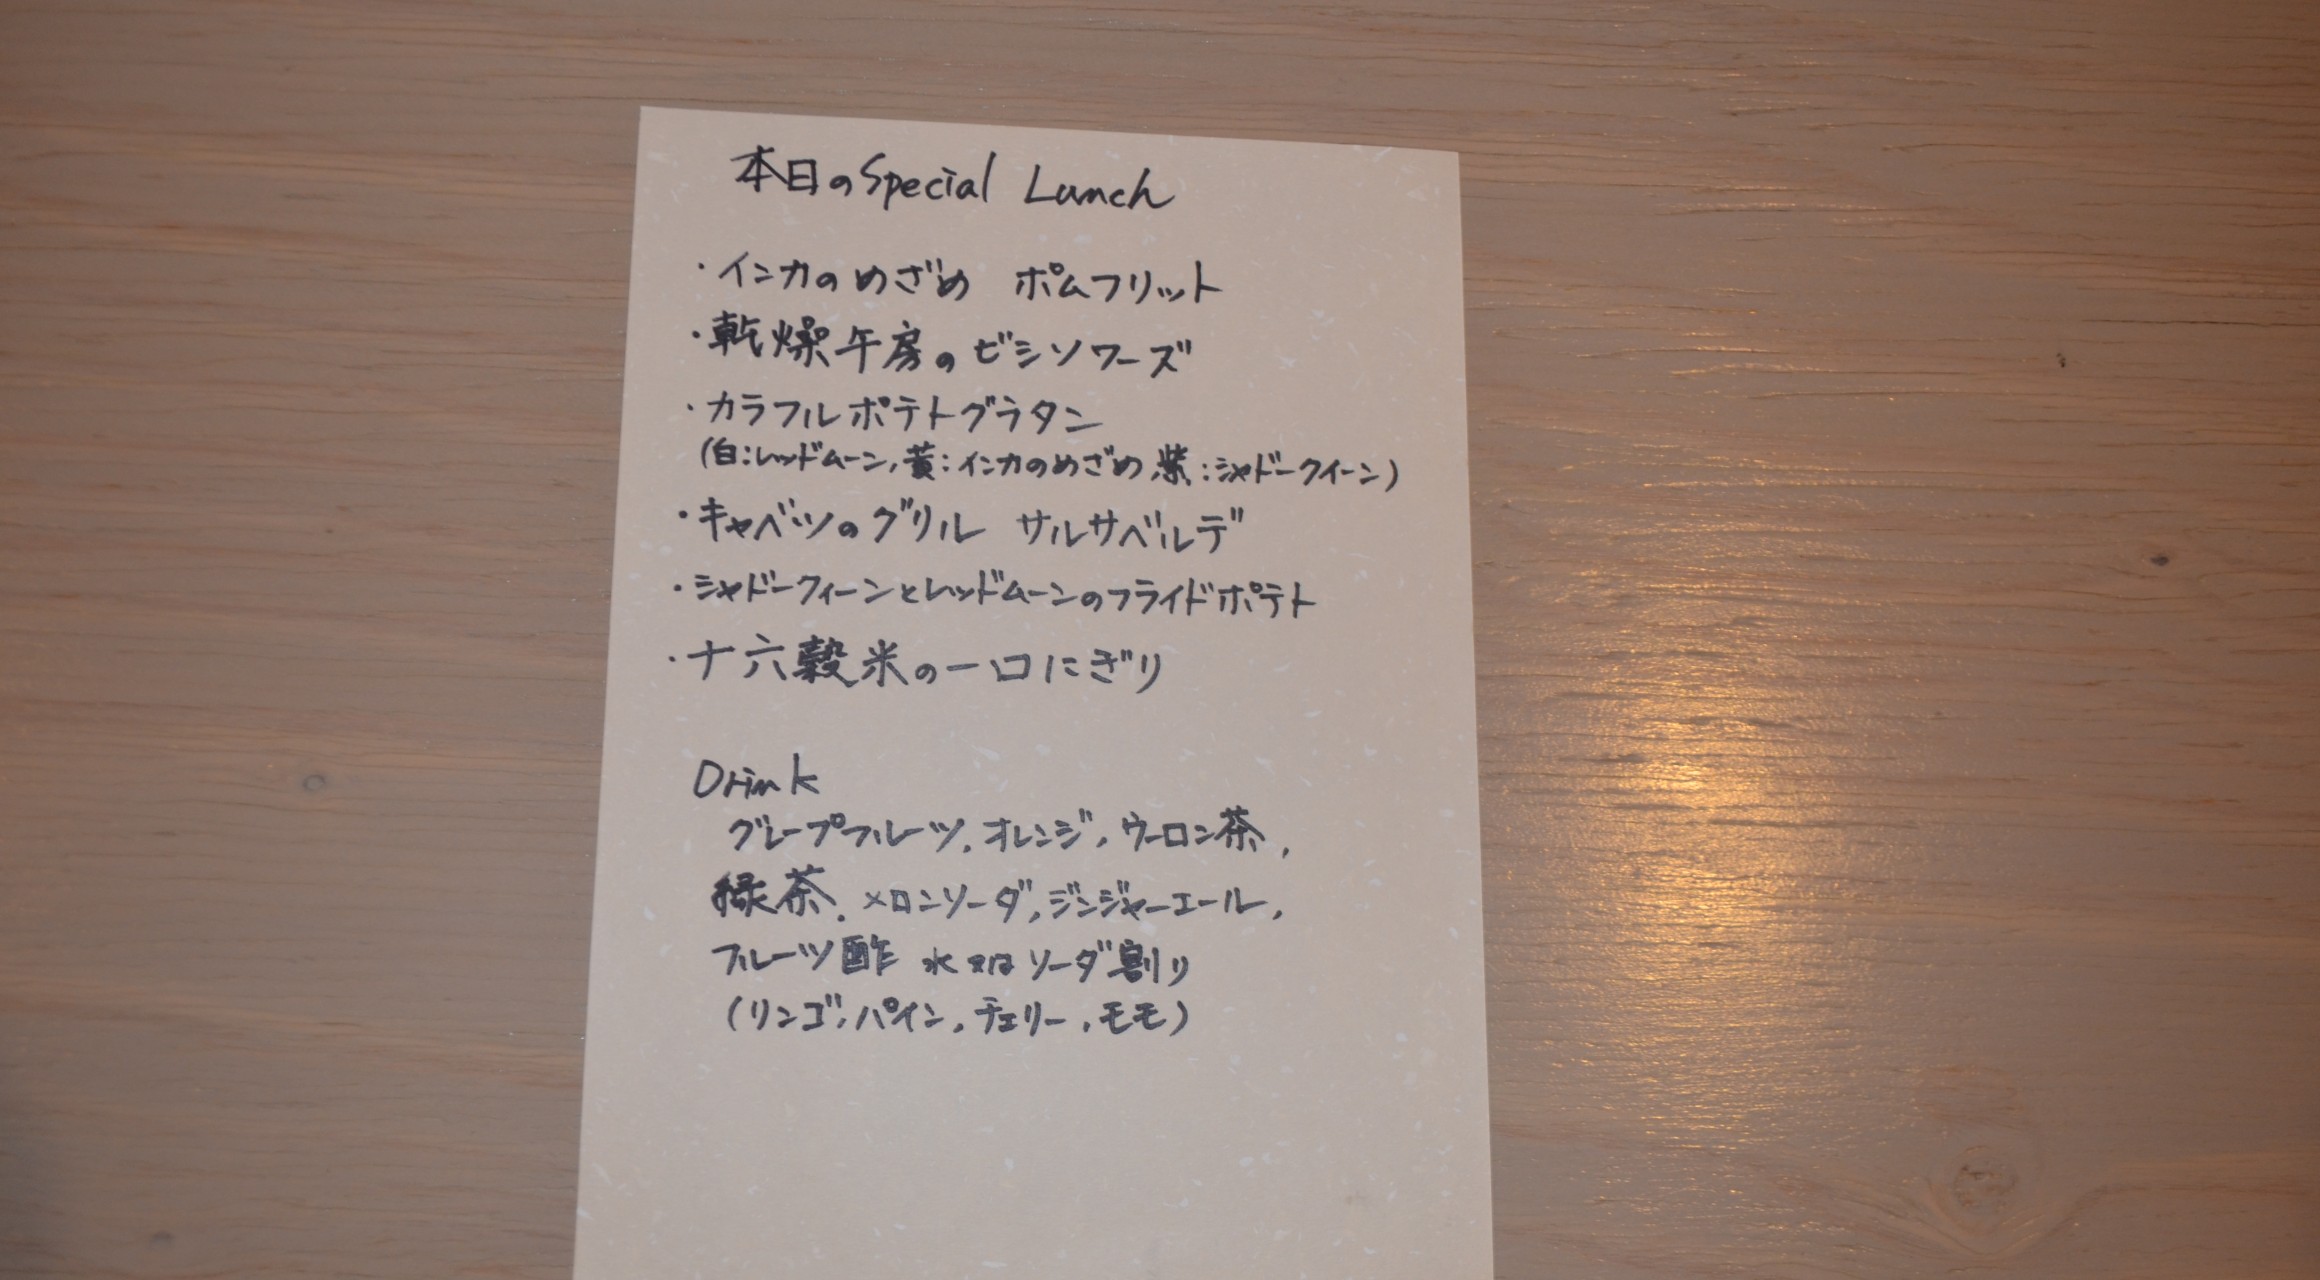 本日のSpecial Lunch
・インカのめざめ ポムフリット
・乾燥午房のビシソワーズ
・カラフルポテトグラタン
(白:レッドムーン,黄:インカのめざめ,紫:シャドークイーン)
・キャベツのグリル サルサベルデ
・シャドークィーンとレッドムーンのフライドポテト
・十六穀米の一口にぎり
Drink
グレープフルーツ,オレンジ,ウーロン茶,
緑茶.メロンソーダ,ジンジャーエール,
フルーツ酢 水又はソーダ割り
(リンゴ,パイン,チェリー,モモ)